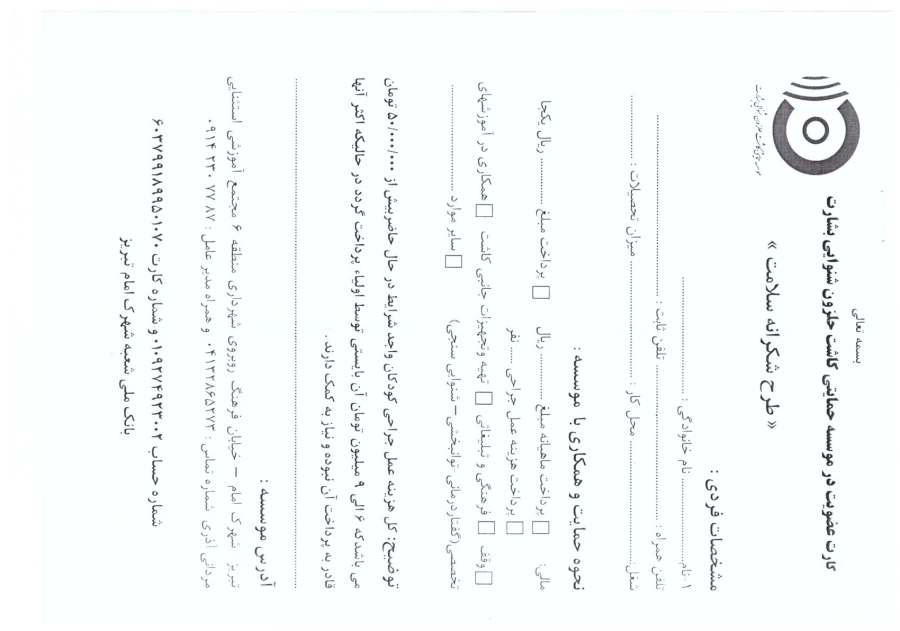 بسمه تعالی
کارت عضویت در موسسه حمایتی کاشت حلزون شنوایی بشارت
« طرح شکرانه سلامت »
مشخصات فردی :
۱ نام.................. نام خانوادگی : ..................
تلفن همراه : .................. تلفن ثابت : ..................
شغل:.................. محل کار : .................. میزان تحصیلات : ..................
نحوه حمایت و همکاری با موسسه :
مالی: □ پرداخت ماهیانه مبلغ .......... ریال □ پرداخت مبلغ .......... ریال یکجا
□ پرداخت هزینه عمل جراحی ..... نفر
□ وقف □ فرهنگی و تبلیغاتی □ تهیه وتجهیزات جانبی کاشت □ همکاری در آموزشهای
تخصصی(گفتاردرمانی -توانبخشی – شنوایی سنجی) □ سایر موارد ..................
توضیح: کل هزینه عمل جراحی کودکان واجد شرایط در حال حاضربیش از ۵۰/۰۰۰/۰۰۰ تومان
می باشدکه ۶ الی ۹ میلیون تومان آن بایستی توسط اولیاء پرداخت گردد در حالیکه اکثر آنها
قادر به پرداخت آن نبوده و نیاز به کمک دارند .
آدرس موسسه :
تبریز شهرک امام – خیابان فرهنگ روبروی شهرداری منطقه ۶ مجتمع آموزشی استثنایی
مردانی آذری شماره تماس : ۰۴۱۳۲۸۶۵۲۷۳ و همراه مدیر عامل : ۰۹۱۴ ۲۳۰ ۷۷ ۸۷
شماره حساب ۰۱۰۹۲۷۴۹۲۳۰۰۲ و شماره کارت ۶۰۳۷۹۹۱۸۹۹۵۰۱۰۷۰
بانک ملی شعبه شهرک امام تبریز